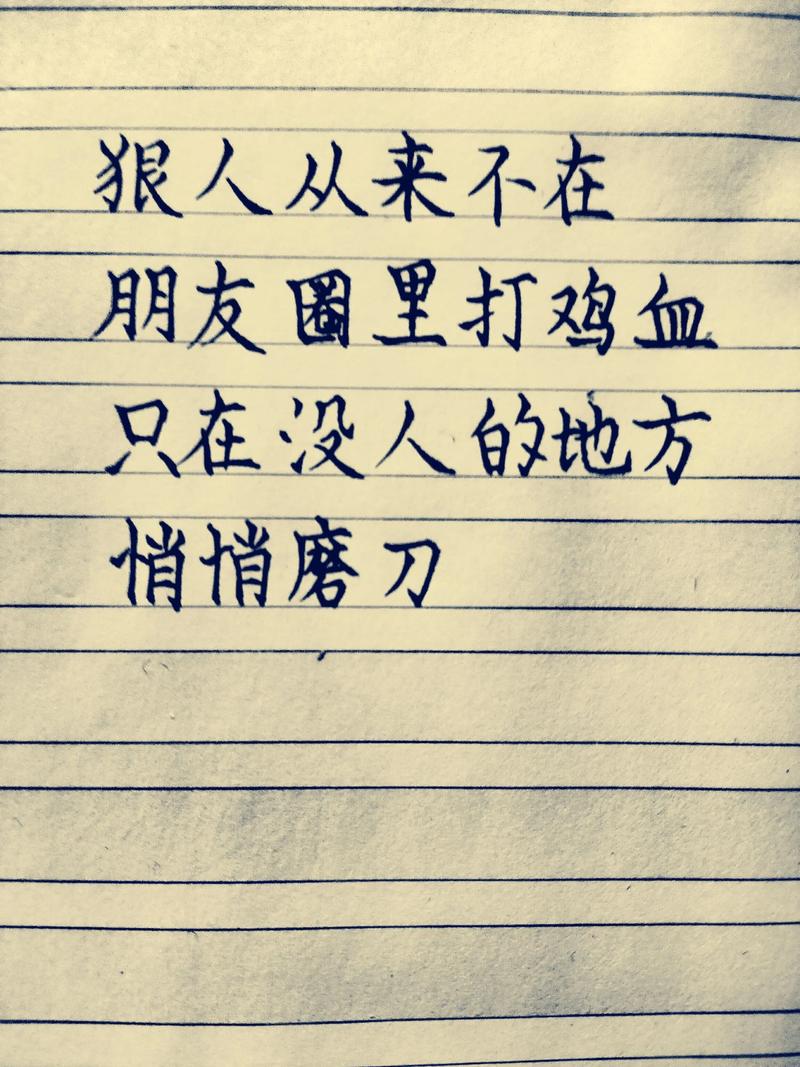 狠人从来不在
朋友圈里打鸡血
只在没人的地方
悄悄磨刀